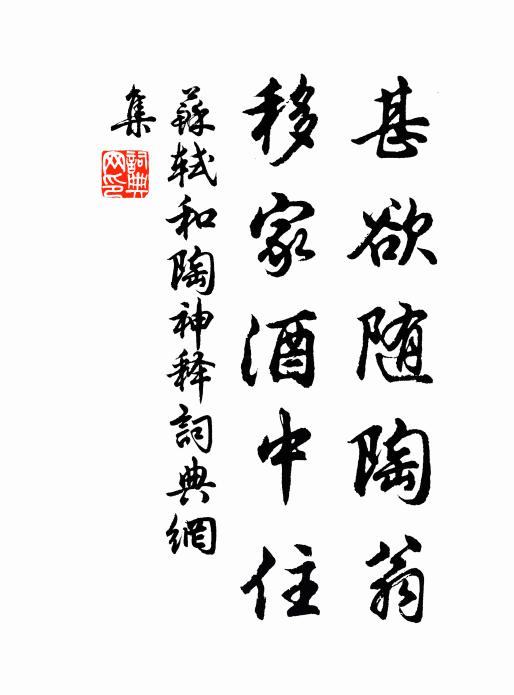 甚欲随陶翁
移家酒中住
蘇軾和陶神释詞典網
集
詞典网印